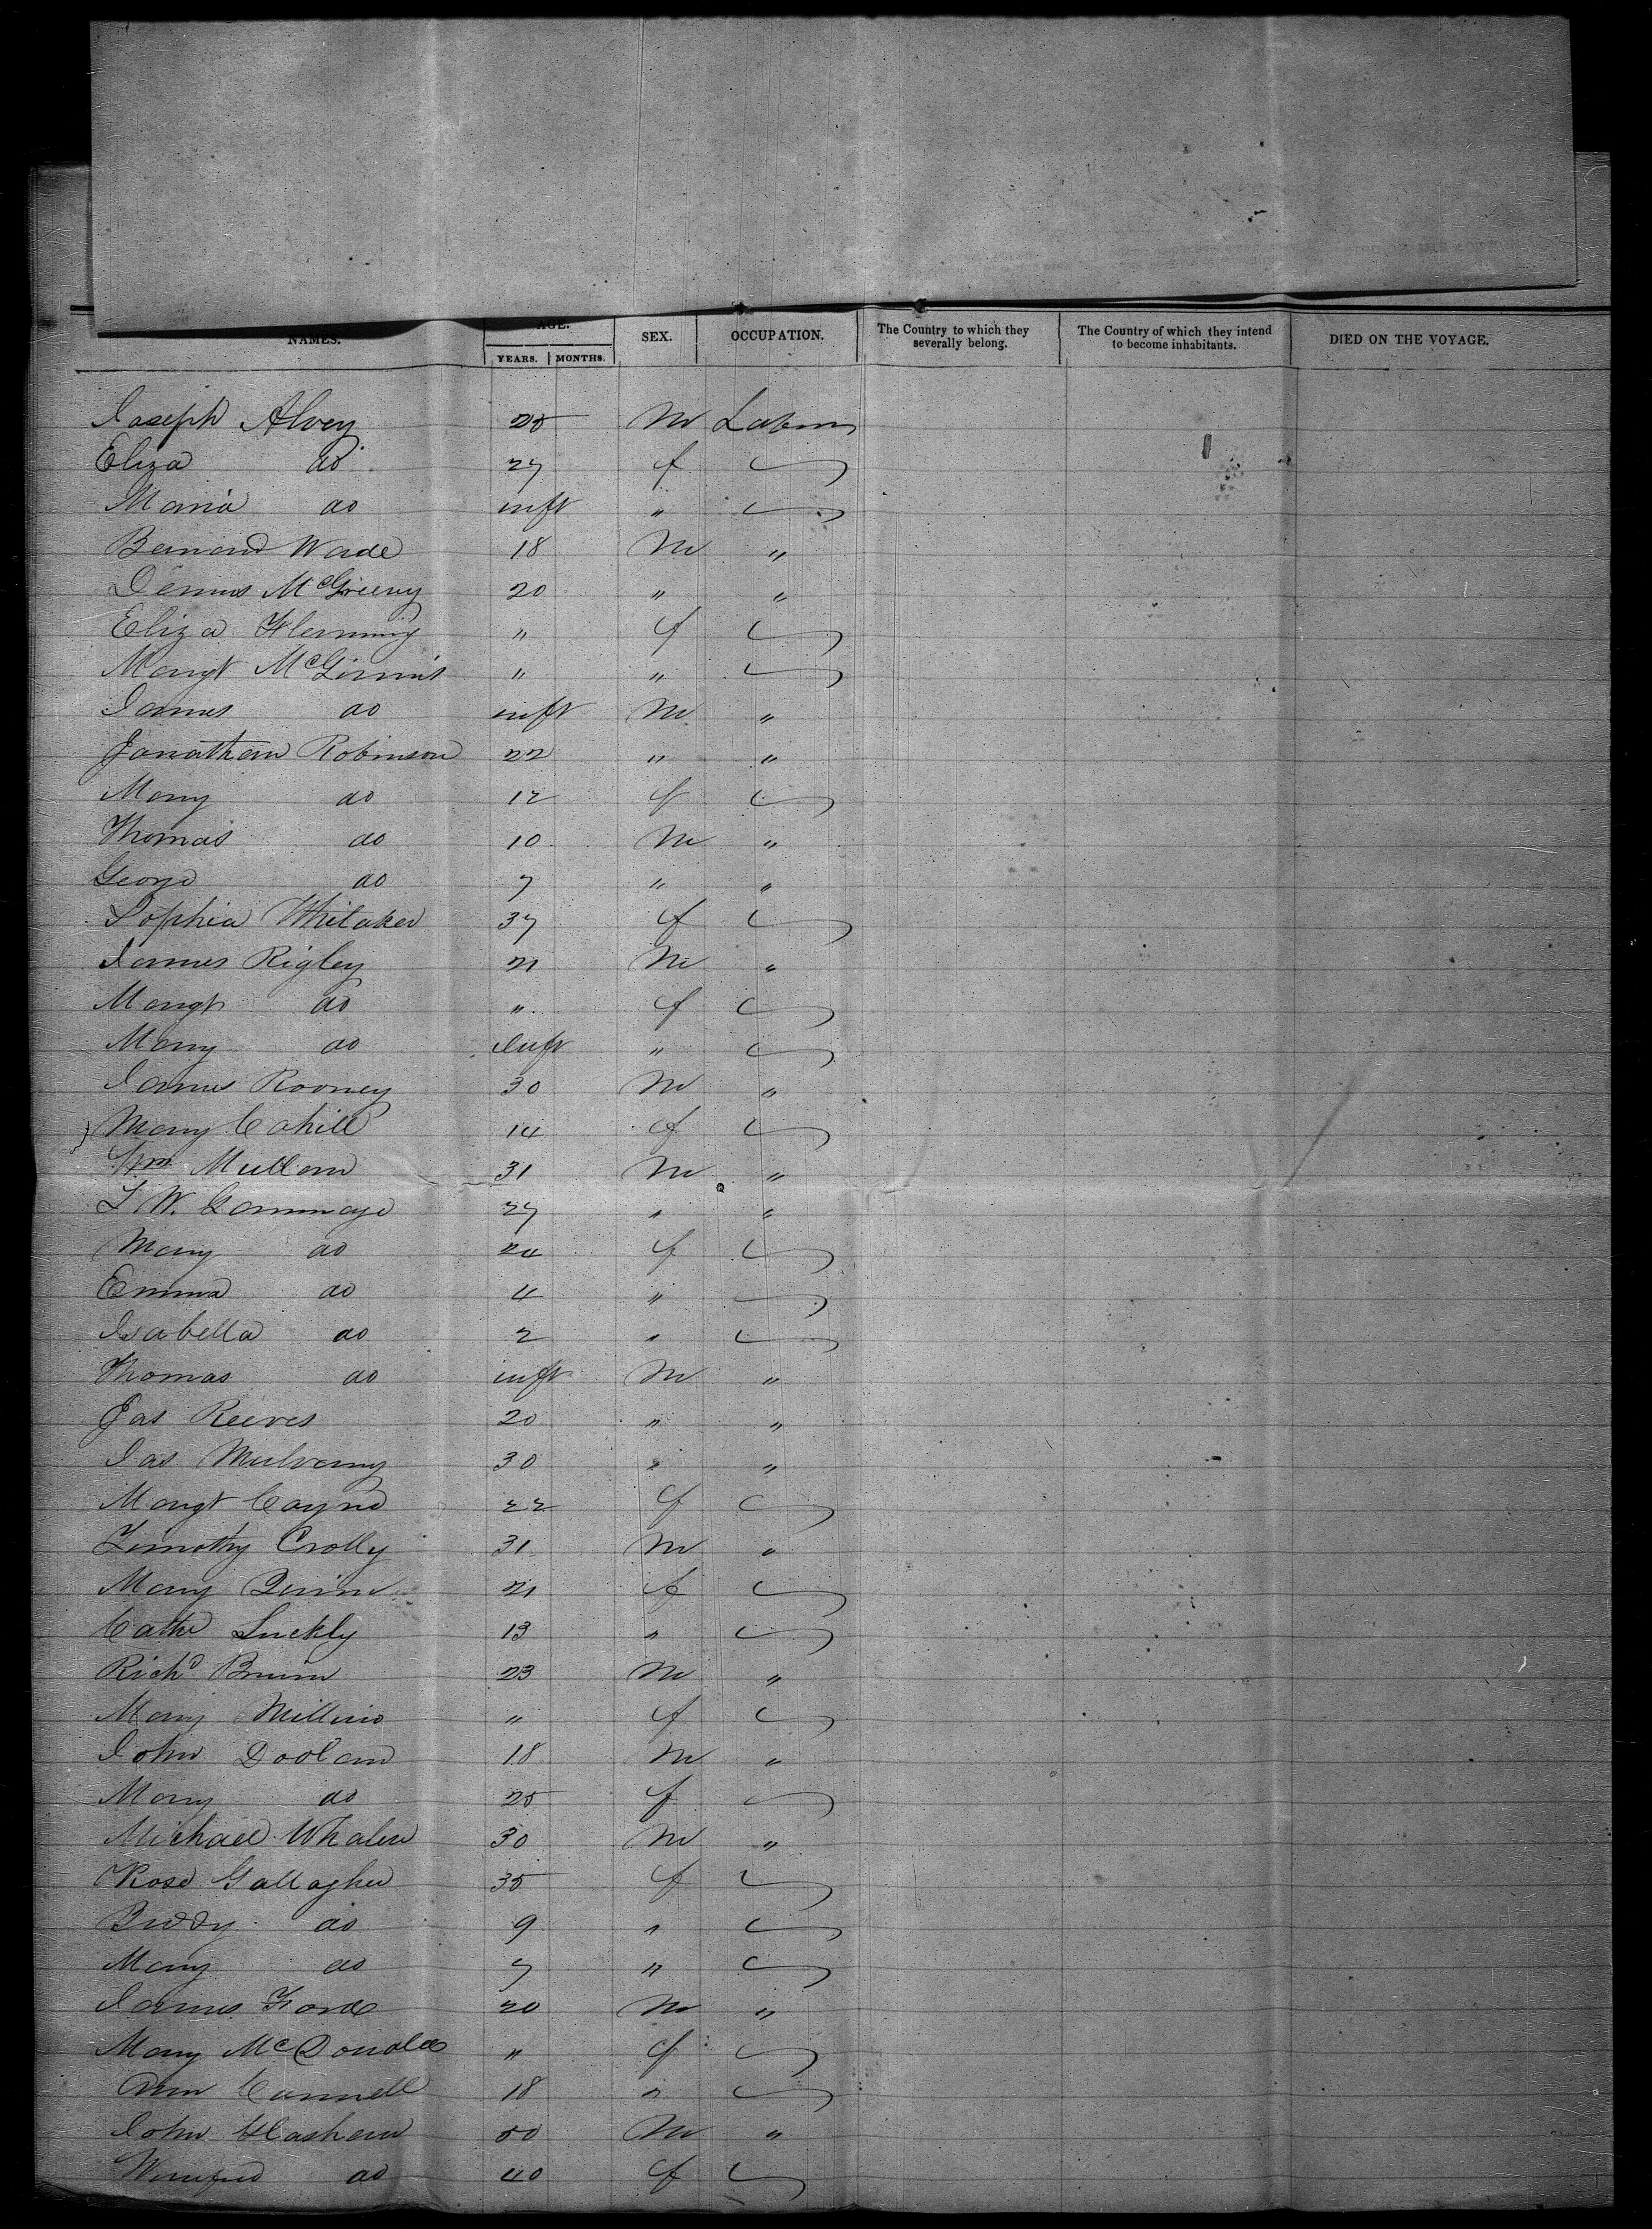 AGE.
NAMES. YEARS. MONTHS. SEX. OCCUPATION. The Country to which they severally belong. The Country of which they intend to become inhabitants. DIED ON THE VOYAGE.
Joseph Alvey 25 M Labour
Eliza do 27 f
Maria do inft "
Bernard Wade 18 M "
Dennis McGreevy 20 " "
Eliza Flemming " f
Margt McGinnis " "
James do inft M "
Jonathan Robinson 22 " "
Mary do 12 f
Thomas do 10 M "
George do 7 " "
Sophia Whitaker 37 f
James Rigley 21 M "
Margt do " f
Mary do Inft "
James Rooney 30 M "
Mary Cahill 14 f
Wm Mullan 31 M "
W. Gammage 27 " "
Mary do 24 f
Emma do 4 "
Isabella do 2 "
Thomas do inft M "
Jas Reeves 20 " "
Jas Mulvany 30 " "
Margt Cayne 22 f
Timothy Crolly 31 M "
Mary Quinn 21 f
Cathe Luckly 13 "
Richd 23 M "
Mary " f
John Doolan 18 M "
Mary do 25 f
Michael Whalen 30 M "
Rose Gallagher 35 f
Biddy do 9 "
Mary do 7 "
James Ford 20 M "
Mary McDonald " f
Ann Connell 18 "
John 50 M "
Winifred do 40 f